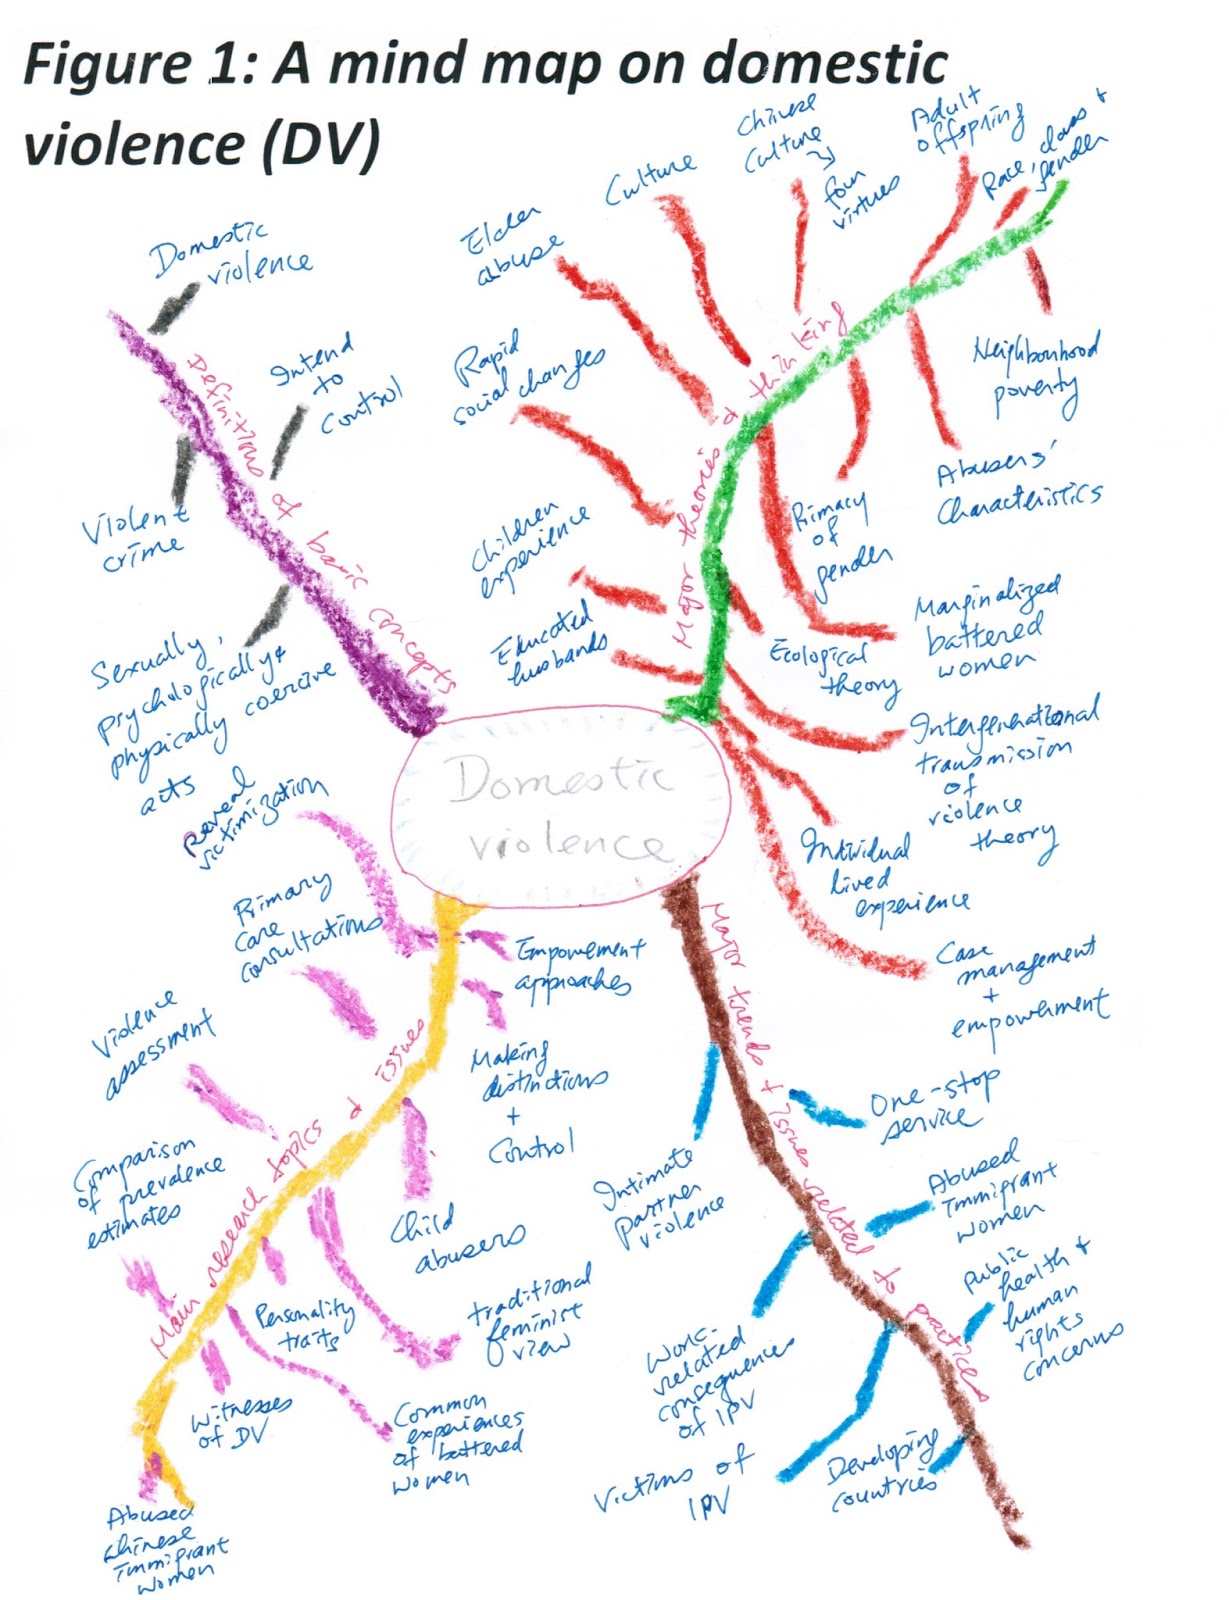 Figure 1: A mind map on domestic
violence (DV)
Domestic
violence
Domestic
violence
Intend
to
control
Definitions of basic concepts
Violent
crime
Sexually,
psychologically &
physically coercive
acts
Major theories & thinking
Elder
abuse
Culture
Chinese
culture
four
virtues
Adult
offspring
Race, class +
gender
Rapid
social changes
Children
experience
Educated
husbands
Neighbourhood
poverty
Abusers'
characteristics
Primacy
of
gender
Marginalized
battered
women
Ecological
theory
Intergenerational
transmission
of
violence
theory
Individual
lived
experience
Case
management
+
empowerment
Main research topics & issues
Reveal
victimization
Primary
care
consultations
Violence
assessment
Comparison
of prevalence
estimates
Empowerment
approaches
Making
distinctions
+
Control
Child
abusers
traditional
feminist
view
Personality
traits
Common
experiences
of battered
women
Witnesses
of DV
Abused
Chinese
immigrant
women
Major trends + issues related to practices
Intimate
partner
violence
One-stop
service
Abused
immigrant
women
Public
health +
human
rights
concerns
Work-
related
consequences
of IPV
Victims of
IPV
Developing
countries